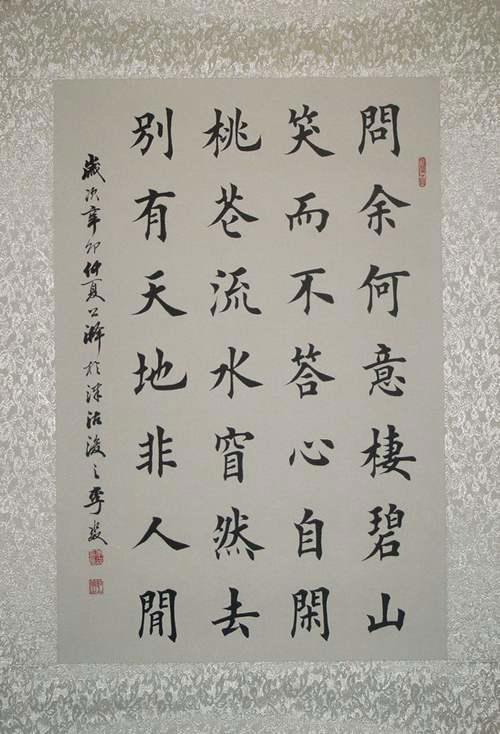 問余何意棲碧山
笑而不答心自閑
桃花流水窅然去
別有天地非人間
歲次辛卯仲夏 於津沽